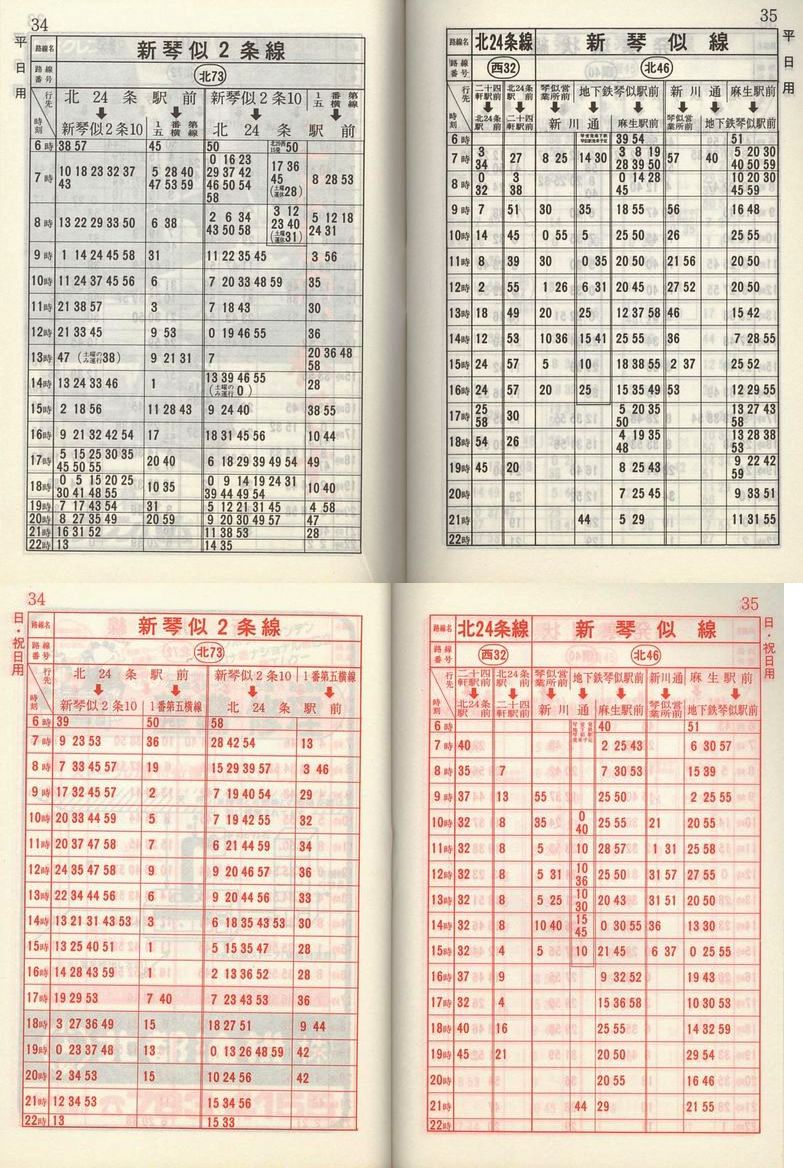 34
平日用
路線名 新琴似2条線
路線番号 北73
行先 時刻
北24条駅前 → 新琴似2条10
1番横五線
新琴似2条10 → 北24条駅前
1番横五線
6時 38 57 45 50 50
7時 10 18 23 32 37 43 5 28 40 47 53 59 0 16 23 29 37 42 46 50 54 58 17 36 45 (土曜運休28) 8 28 53
8時 13 22 29 33 50 6 38 2 6 34 43 50 58 3 12 23 40 (土曜運休31) 5 12 18 24 31
9時 1 14 24 45 58 31 11 22 35 45 3 56
10時 11 24 37 45 56 6 7 20 33 48 59 35
11時 21 38 57 3 7 18 43 30
12時 21 33 45 9 53 0 19 46 55 36
13時 47 (土曜のみ運行38) 9 21 31 7 20 36 48 58
14時 13 24 33 46 1 13 39 46 55 (土曜のみ運行0) 28
15時 2 18 56 11 28 43 9 24 40 38 55
16時 9 21 32 42 54 17 18 31 45 56 10 44
17時 5 15 25 30 35 45 50 55 20 40 6 18 29 39 49 54 49
18時 0 5 15 20 25 30 41 48 55 10 35 0 9 14 19 24 31 39 44 49 54 10 40
19時 7 17 43 54 31 5 12 21 31 45 4 58
20時 8 27 35 49 20 59 9 20 30 49 57 47
21時 16 31 52 11 38 53 28
22時 13 14 35
35
平日用
路線名 北24条線 新琴似線
路線番号 西32 北46
行先 時刻
二十四軒駅前 → 北24条駅前
北24条駅前 → 二十四軒駅前
琴似営業所前 地下鉄琴似駅前 新川通 麻生駅前
新川通 麻生駅前 琴似営業所前 地下鉄琴似駅前
6時 39 54 51
7時 3 34 27 8 25 14 30 3 8 19 28 39 50 57 40 5 20 30 40 50 59
8時 0 32 3 38 0 14 28 45 10 20 30 45 59
9時 7 51 30 35 18 55 56 16 48
10時 14 45 0 55 5 25 50 26 25 55
11時 8 39 30 0 35 20 50 21 56 20 50
12時 2 55 1 26 6 31 20 45 27 52 20 50
13時 18 49 20 25 12 37 58 46 15 42
14時 12 53 10 36 15 41 25 55 36 7 28 55
15時 24 57 5 10 18 38 55 2 37 25 52
16時 24 57 20 25 15 35 49 53 12 29 55
17時 25 58 30 5 20 35 50 13 27 43 58
18時 54 26 4 19 35 48 13 28 38 53
19時 45 20 8 25 43 9 22 42 59
20時 7 25 45 9 33 51
21時 44 5 29 11 31 55
22時
34
日・祝日用
路線名 新琴似2条線
路線番号 北73
行先 時刻
北24条駅前 → 新琴似2条10
1番第五横線
新琴似2条10 1番第五横線 → 北24条駅前
6時 39 50 58
7時 9 23 53 36 28 42 54 13
8時 7 33 45 57 19 15 29 39 57 3 46
9時 17 32 45 57 2 7 19 40 54 29
10時 20 33 44 59 5 7 19 42 55 32
11時 20 37 47 58 7 6 21 44 59 34
12時 24 35 47 58 9 9 20 46 57 36
13時 22 34 44 56 6 9 20 44 56 33
14時 13 21 31 43 53 3 6 18 35 43 53 30
15時 13 25 40 51 1 5 15 35 47 28
16時 14 28 43 59 1 2 13 36 52 28
17時 19 29 53 7 40 7 23 43 53 36
18時 3 27 36 49 15 18 27 51 9 44
19時 0 23 37 48 13 0 13 26 48 59 42
20時 2 34 53 15 10 24 56 42
21時 12 34 53 15 34 56
22時 13 15 33
35
日・祝日用
路線名 北24条線 新琴似線
路線番号 西32 北46
行先 時刻
二十四軒駅前 → 北24条駅前
北24条駅前 → 二十四軒駅前
琴似営業所前 地下鉄琴似駅前 新川通 麻生駅前
新川通 麻生駅前 琴似営業所前 地下鉄琴似駅前
6時 40 51
7時 40 2 25 43 6 30 57
8時 35 7 7 30 53 15 39
9時 37 13 55 25 50 2 25 55
10時 32 8 35 0 40 25 55 21 20 55
11時 32 8 5 10 28 57 1 31 25 58
12時 32 8 5 31 10 36 25 50 31 57 27 55
13時 32 8 5 25 10 30 20 43 31 51 20 50
14時 32 8 10 40 15 45 0 30 55 36 13 30
15時 32 4 5 10 21 45 6 37 0 25 55
16時 37 9 9 32 52 19 43
17時 32 4 15 36 58 10 30 53
18時 40 16 25 55 14 32 59
19時 45 21 20 50 29 54
20時 20 55 16 46
21時 44 29 21 55
22時